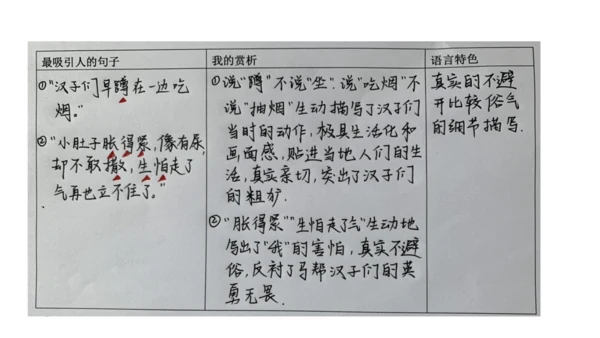 最吸引人的句子
我的赏析
语言特色
①“汉子们早蹲在一边吃
烟。”
②“小肚子胀得紧，像有尿，
却不敢撒，生怕走了
气再也立不住了。”
①说“蹲”不说“坐”，说“吃烟”不
说“抽烟”生动描写了汉子们
当时的动作，极具生活化和
画面感，贴进当地人们的生
活，真实亲切，突出了汉子们
的粗犷.
②“胀得紧”“生怕走了气”生动地
写出了“我”的害怕，真实不避
俗，反衬了马帮汉子们的英
勇无畏.
真实的不避
开比较俗气
的细节描写.